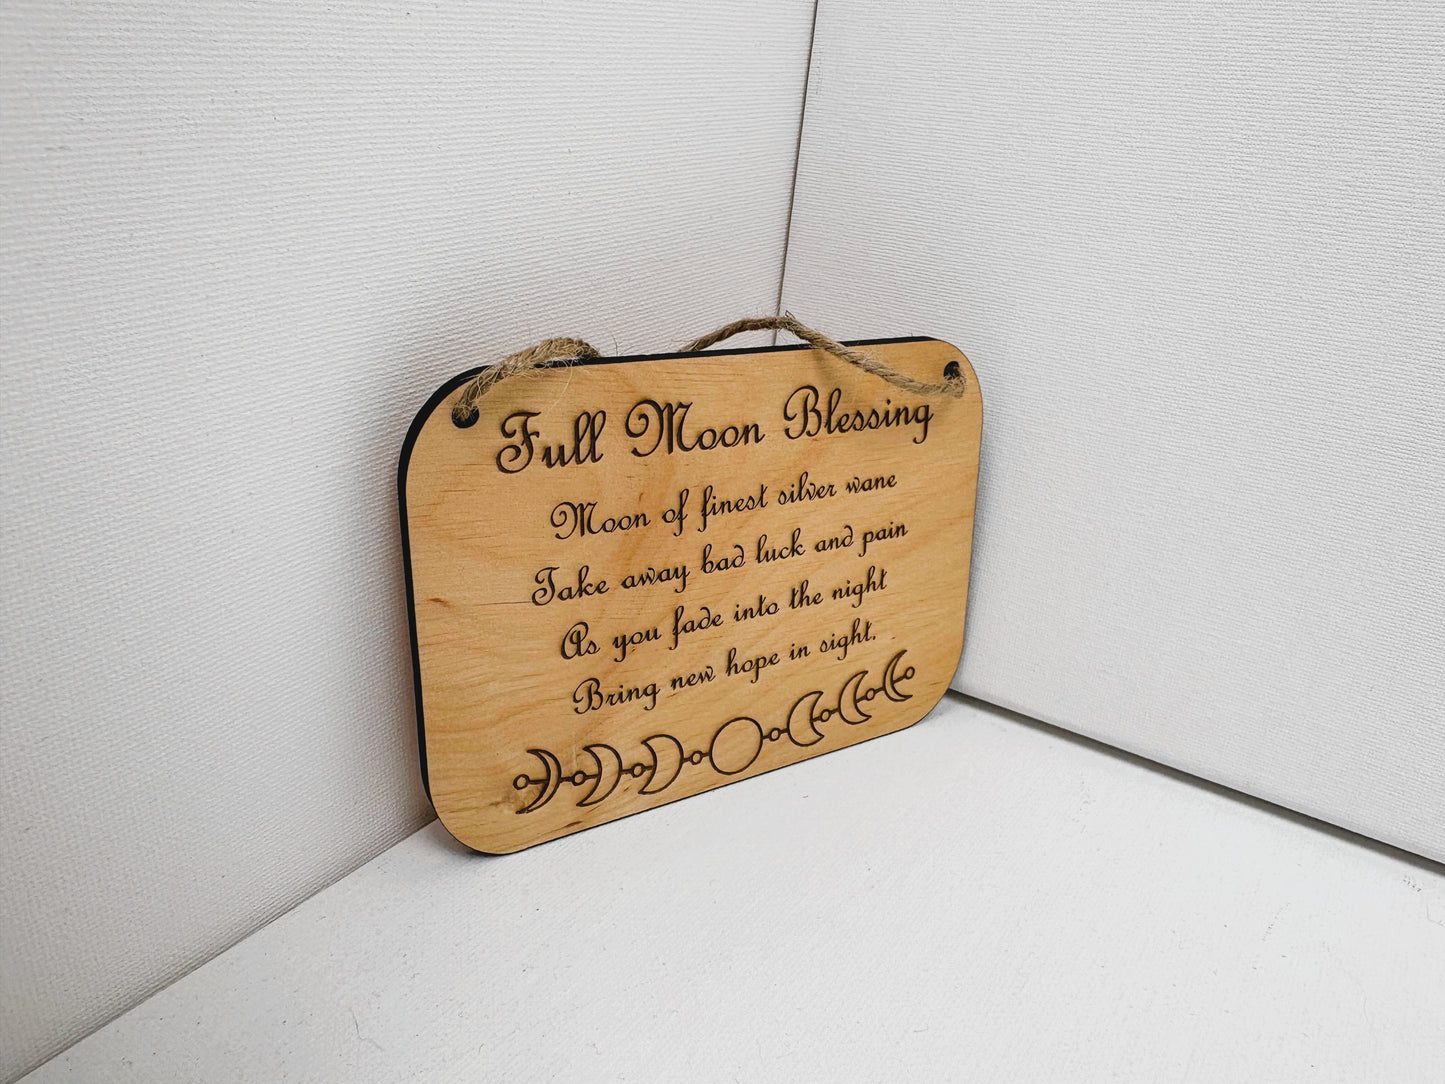 Full Moon Blessing
Moon of finest silver wane
Take away bad luck and pain
As you fade into the night
Bring new hope in sight.